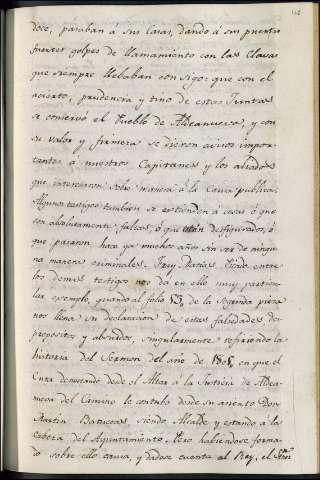 doce, pasaban á sus casas, dando á sus puertas
fuertes golpes de llamamiento con las Clavas
que siempre llebaban consigo: que con el
acierto, prudencia y tino de estas Juntas
se conservó el Pueblo de Aldeanueva, y con
su valor y firmeza se dieron avisos impor-
tantes á nuestros Capitanes y los aliados
que interesaron sobre manera á la Causa publica.
Algunos testigos tambien se estienden á cosas ó que
son absolutamente falsas, ó que están desfiguradas, ó
que pasaron hace ya muchos años sin ser de ningu-
na manera criminales. Fray Matias entre
los demas testigos nos da en ello muy particu-
lar exemplo, quando al folio 53, de la segunda pieza
nos llena su declaracion de estas falsedades des-
propositos y absurdos, singularmente refiriendo la
historia del Sermon del año de 1805, en que el
Cura denostando desde el Altar á la Justicia de Aldea-
nueva del Camino le contubo desde su asiento Don
Martin siendo Alcalde y estando á la
cabeza del Ayuntamiento. Mero habiendose forma-
do sobre ello causa, y dadose cuenta al Rey, el